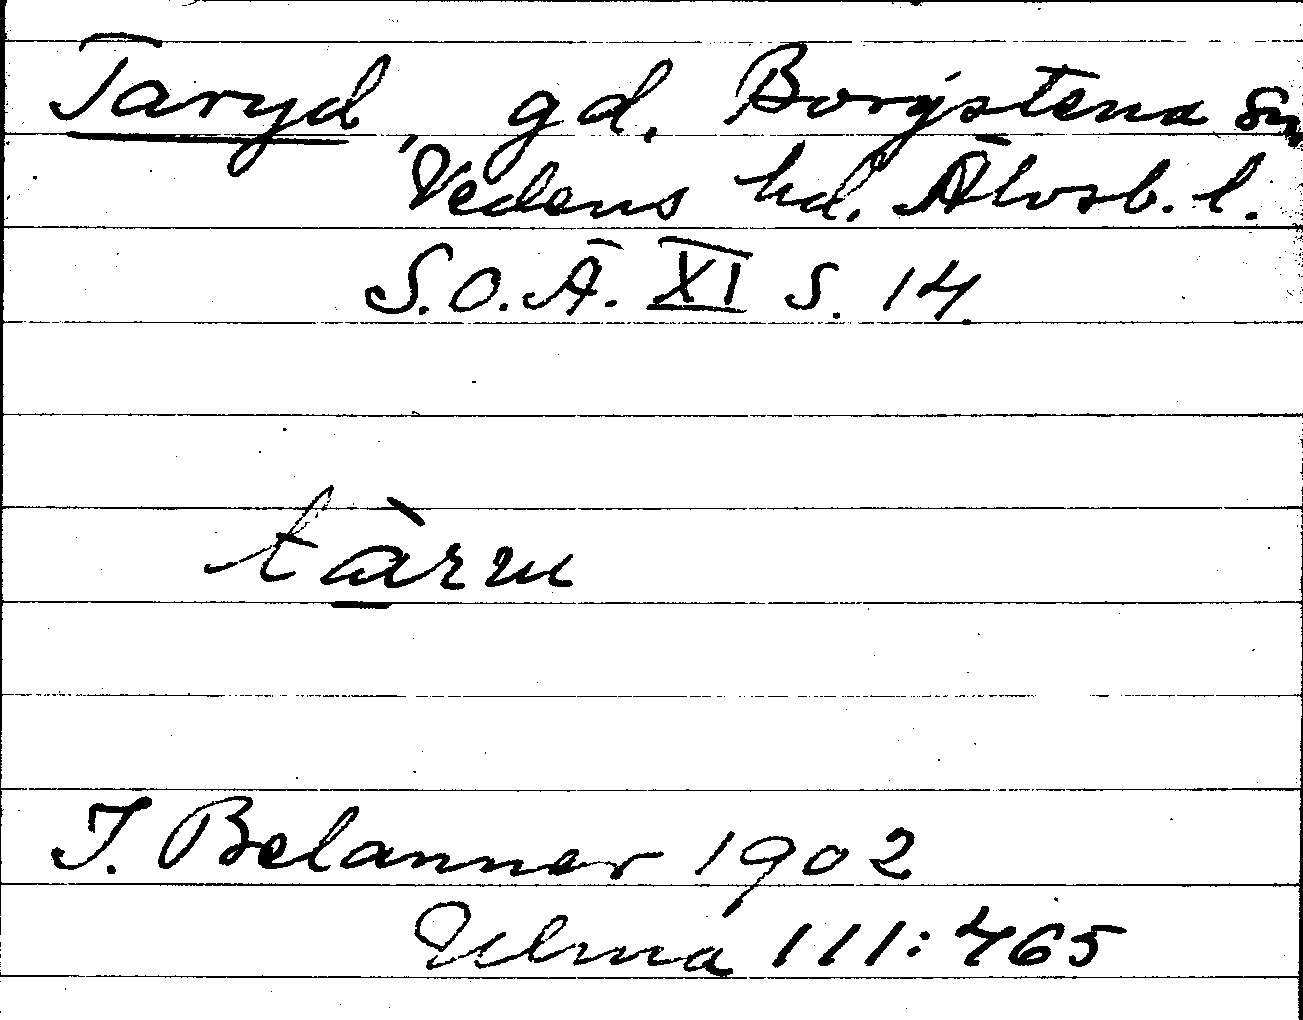 Taryd, gd. Borgstena sn,
Vedens hd. Älvsb. l.
S.O.Ä. XI S. 14.
tàrɯ
J. Belanner 1902
Ulma 111:465